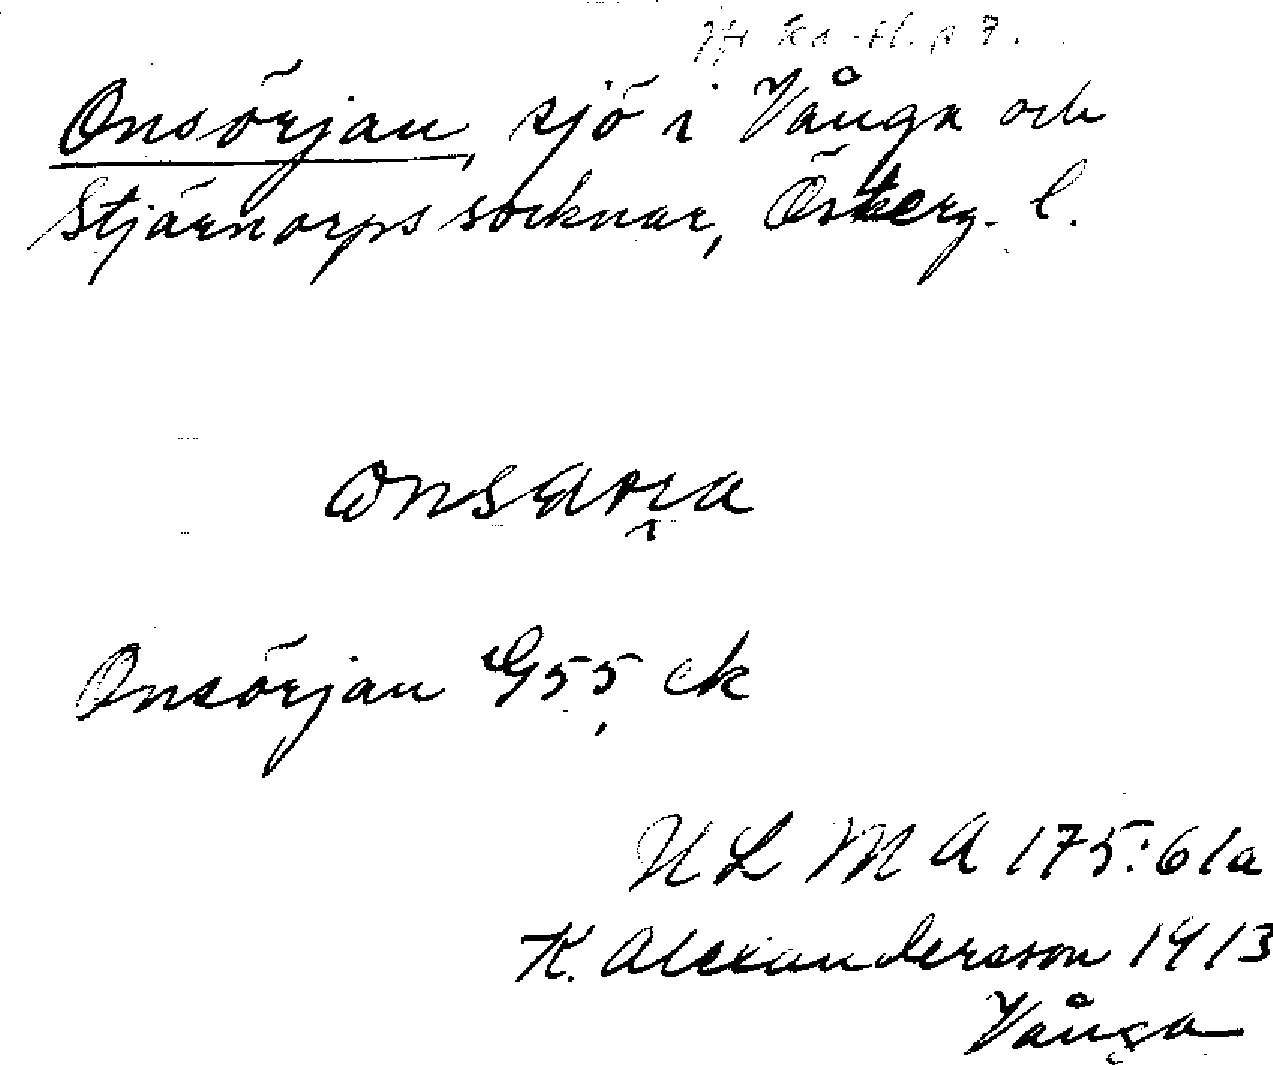 Onsörjan, sjö i Vånga och
Stjärnorps socknar, Österg. l.
Onsörjan G55, ek
ULMA 175:61a
K. Alexandersson 1913
Vånga